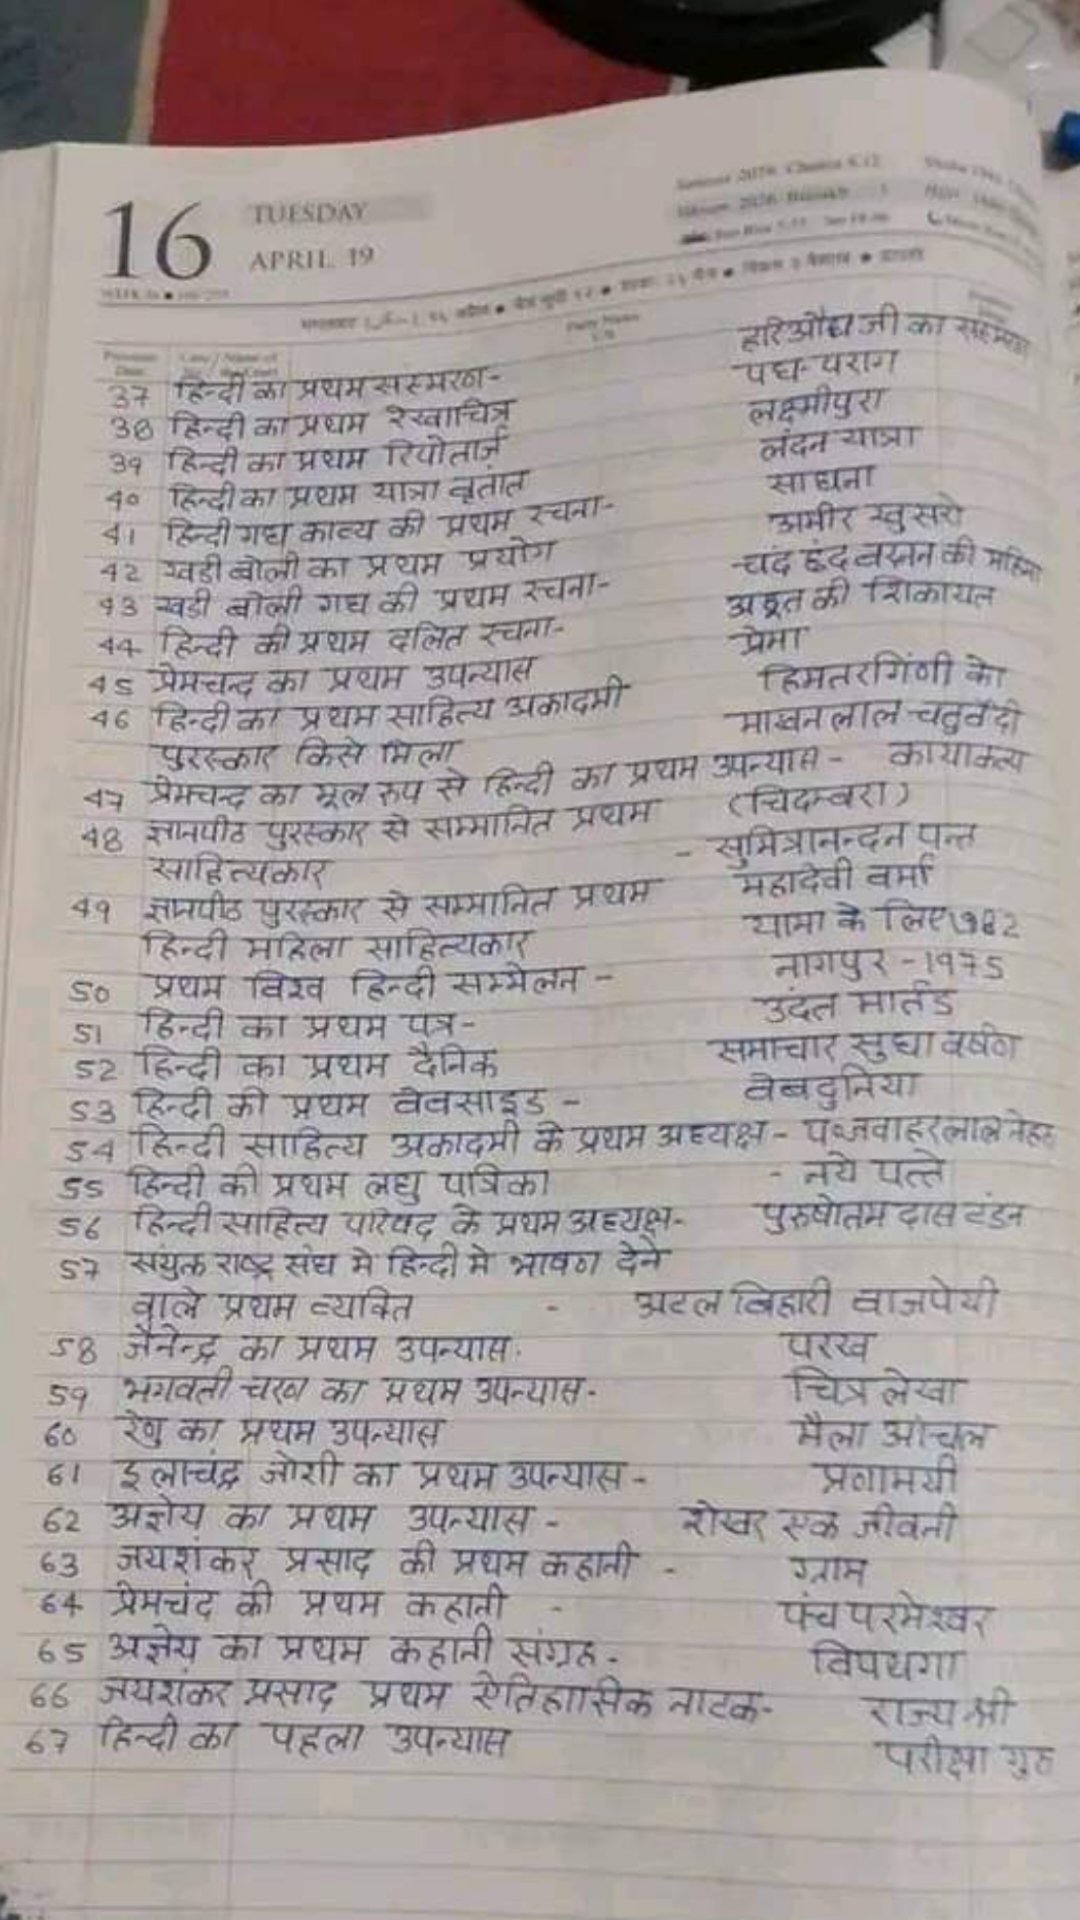 16
TUESDAY
APRIL 19
हरिऔध जी का संस्मरण
37 हिन्दी का प्रथम सस्मरण- पद्य-पराग
38 हिन्दी का प्रथम रेखाचित्र लक्ष्मीपुरा
39 हिन्दी का प्रथम रिपोतार्ज लंदन यात्रा
40 हिन्दी का प्रथम यात्रा वृतांत साधना
41 हिन्दी गद्य काव्य की प्रथम रचना- अमीर खुसरो
42 खडी बोली का प्रथम प्रयोग चंद छंद वरनन की महिमा
43 खडी बोली गद्य की प्रथम रचना- अछूत की शिकायत
44 हिन्दी की प्रथम दलित रचना- प्रेमा
45 प्रेमचन्द का प्रथम उपन्यास हिमतरगिंणी को
46 हिन्दी का प्रथम साहित्य अकादमी माखनलाल चतुर्वेदी
पुरस्कार किसे मिला
47 प्रेमचन्द का मूल रुप से हिन्दी का प्रथम उपन्यास - कायाकल्प
48 ज्ञानपीठ पुरस्कार से सम्मानित प्रथम (चिदम्बरा)
साहित्यकार - सुमित्रानन्दन पन्त
49 ज्ञानपीठ पुरस्कार से सम्मानित प्रथम महादेवी वर्मा
हिन्दी महिला साहित्यकार यामा के लिए 1982
50 प्रथम विश्व हिन्दी सम्मेलन - नागपुर - 1975
51 हिन्दी का प्रथम पत्र- उदंत मार्तंड
52 हिन्दी का प्रथम दैनिक समाचार सुधा वर्षण
53 हिन्दी की प्रथम वेवसाइड - वेबदुनिया
54 हिन्दी साहित्य अकादमी के प्रथम अध्यक्ष - पं.जवाहरलाल नेहरु
55 हिन्दी की प्रथम लघु पत्रिका - नये पत्ते
56 हिन्दी साहित्य परिषद के प्रथम अध्यक्ष- पुरुषोतम दास टंडन
57 संयुक्त राष्ट्र संघ मे हिन्दी मे भाषण देने
वाले प्रथम व्यक्ति - अटल बिहारी वाजपेयी
58 जैनेन्द्र का प्रथम उपन्यास. परख
59 भगवती चरण का प्रथम उपन्यास- चित्रलेखा
60 रेणु का प्रथम उपन्यास मैला आंचल
61 इलाचंद्र जोशी का प्रथम उपन्यास - प्रणामयी
62 अज्ञेय का प्रथम उपन्यास - शेखर एक जीवनी
63 जयशंकर प्रसाद की प्रथम कहानी - ग्राम
64 प्रेमचंद की प्रथम कहानी - पंच परमेश्वर
65 अज्ञेय का प्रथम कहानी संग्रह- विपथगा
66 जयशंकर प्रसाद प्रथम ऐतिहासिक नाटक- राज्य श्री
67 हिन्दी का पहला उपन्यास परीक्षा गुरु